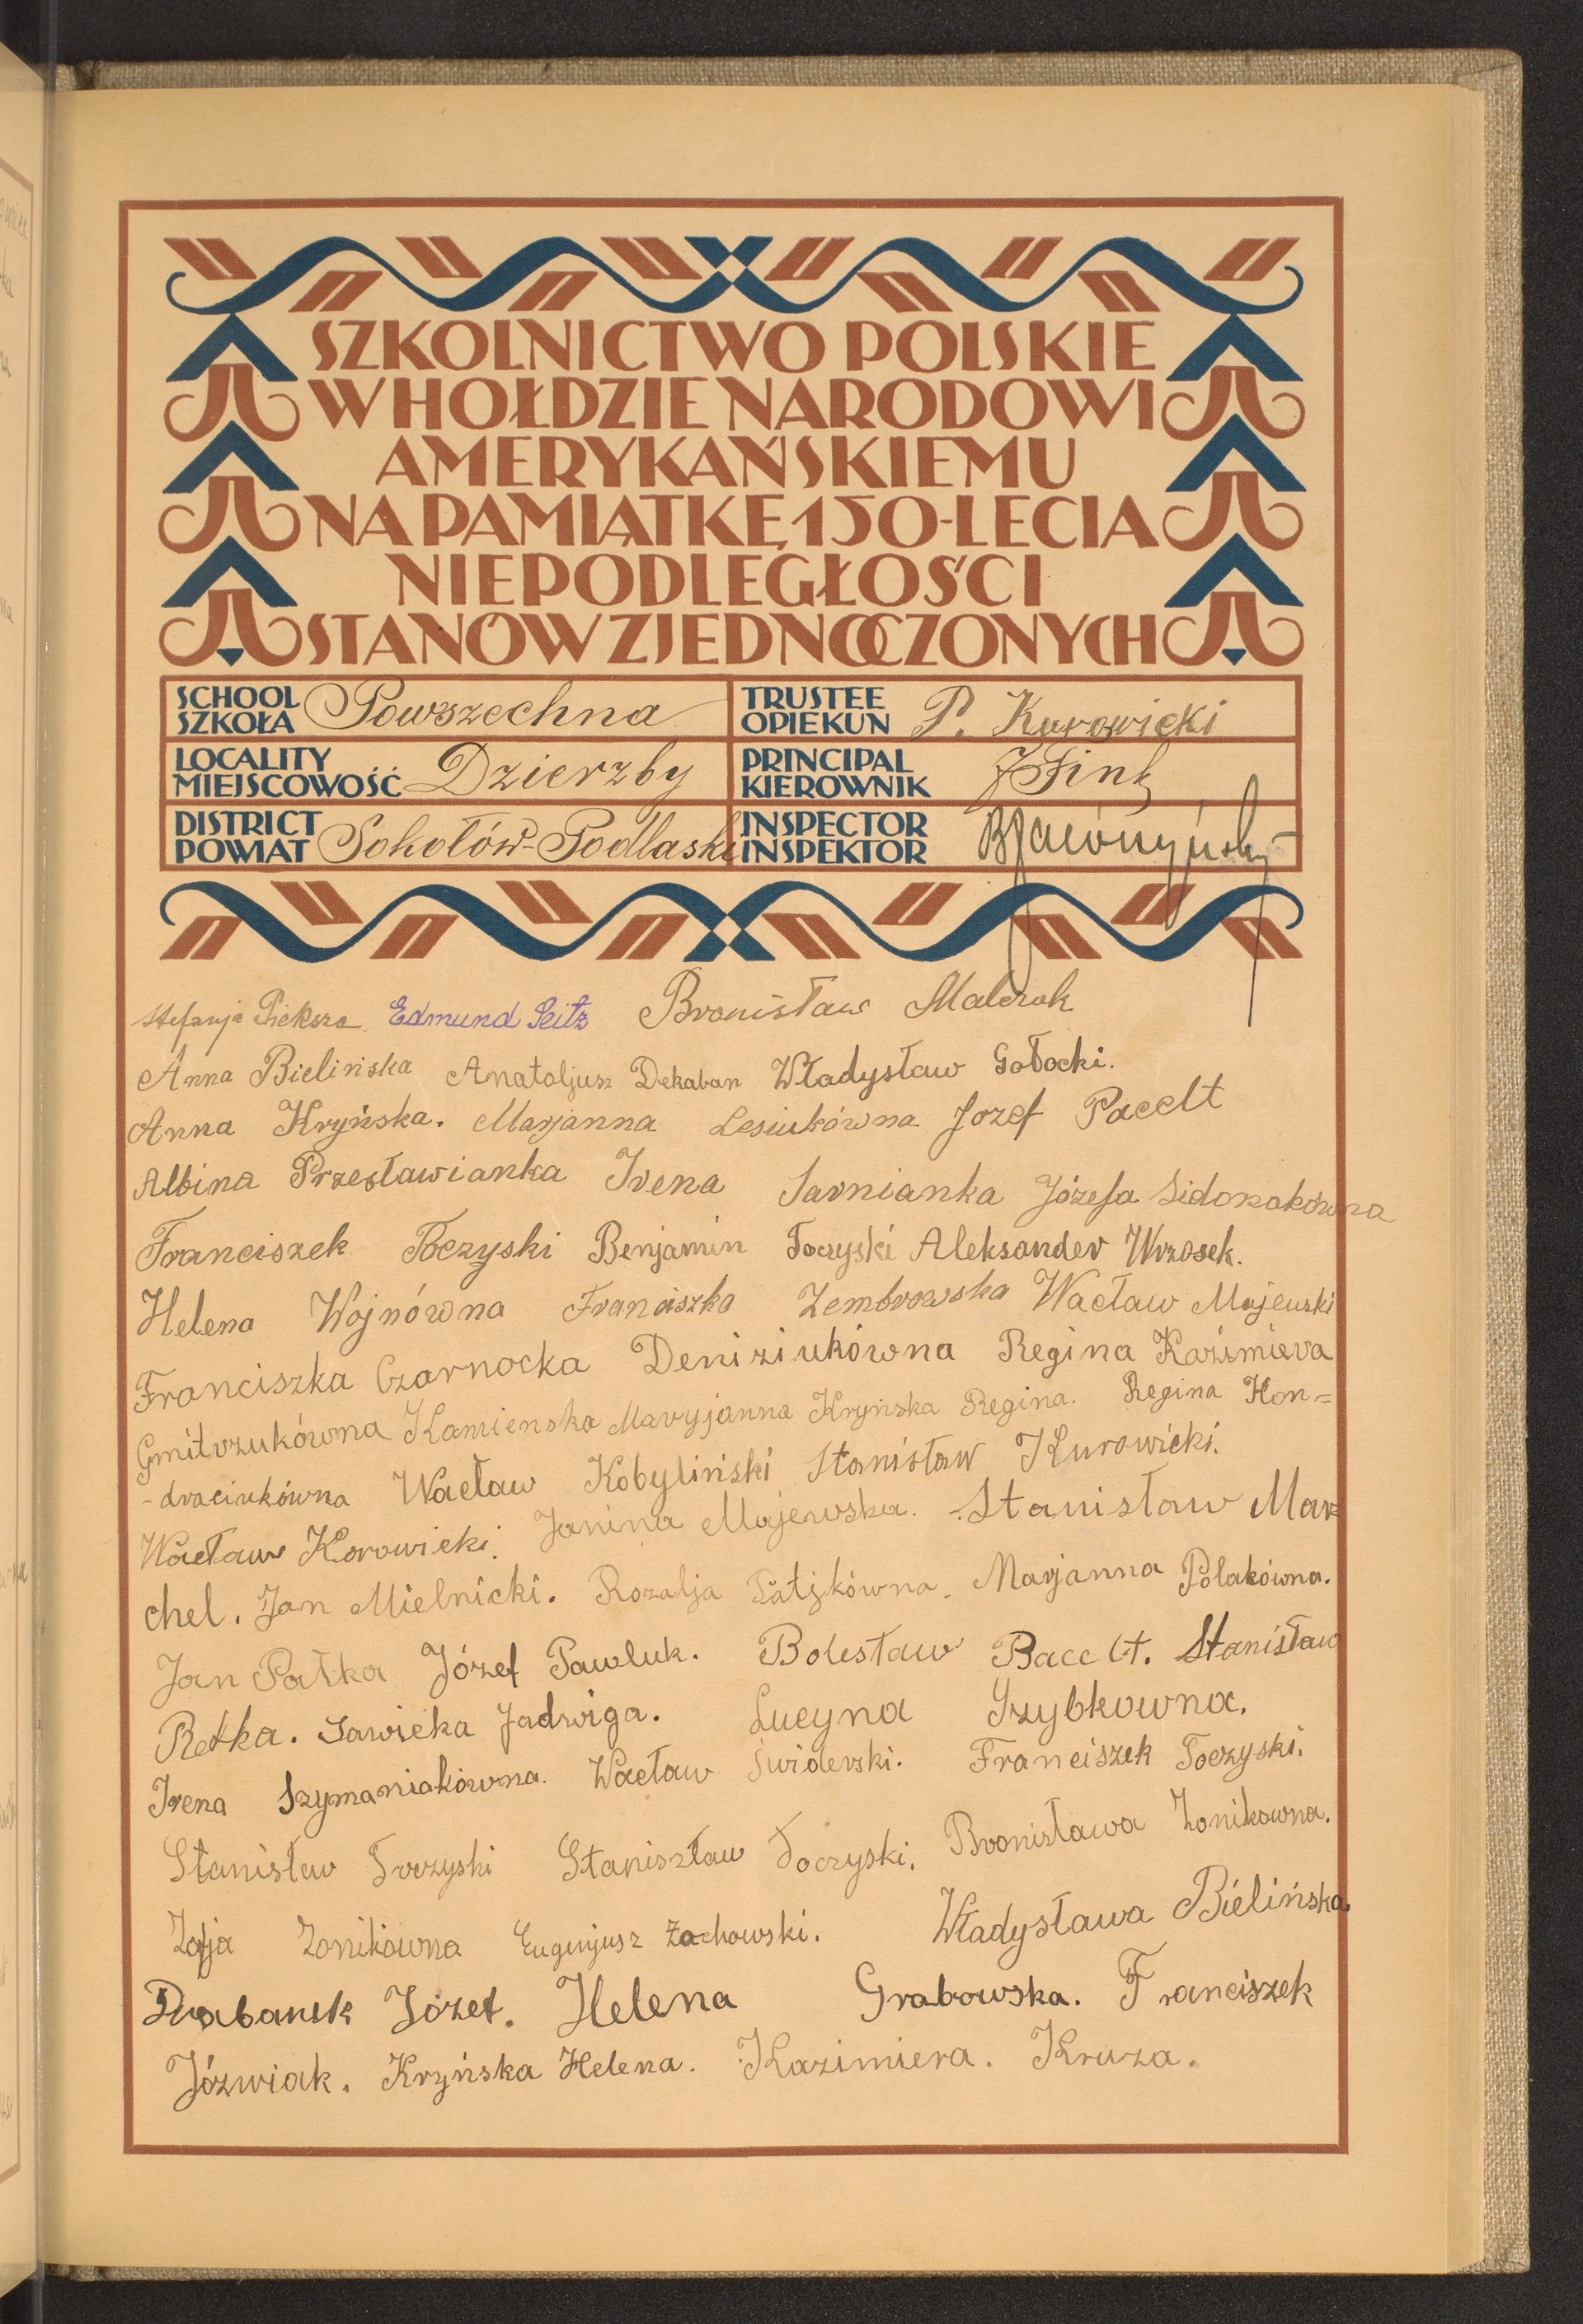 SZKOLNICTWO POLSKIE
W HOŁDZIE NARODOWI
AMERYKAŃSKIEMU
NA PAMIĄTKĘ 150-LECIA
NIEPODLEGŁOŚCI
STANÓW ZJEDNOCZONYCH
SCHOOL SZKOŁA Powszechna
TRUSTEE OPIEKUN P. Kurowicki
LOCALITY MIEJSCOWOŚĆ Dzierzby
PRINCIPAL KIEROWNIK J Fink
DISTRICT POWIAT Sokołów-Podlaski
INSPECTOR INSPEKTOR
Stefanja Pieksza Edmund Seitz Bronisław Malczuk
Anna Bielińska Anatoljusz Dekaban Władysław Gołocki.
Anna Kryńska. Marjanna Lesiukówna Jozef Pacelt
Albina Przesławianka Irena Sarnianka Józefa Sidorzakówna
Franciszek Toczyski Benjamin Toczyski Aleksander Wrzosek.
Helena Wojnówna Franciszka Zembrowska Wacław Majewski
Franciszka Czarnocka Deniziukówna Regina Kazimiera
Gmitrzukówna Kamienska Maryjanna Kryńska Regina. Regina Kon=
-draciukówna Wacław Kobyliński Stanisław Kurowicki.
Wacław Korowicki. Janina Majewska. Stanisław Mar
chel. Jan Mielnicki. Rozalja Marjanna Polakówna.
Jan Pałka Józef Pawluk. Bolesław Bacelt. Stanisław
Retka. Sawicka Jadwiga. Lucyna Szybkowna.
Irena Szymaniakówna. Wacław Świderski. Franciszek Toczyski.
Stanisław Toczyski Staniszław Toczyski. Bronisława Zonikowna.
Zofja Zonikówna Eugenjusz Żochowski. Władysława Bielińska
Drabarek Józef. Helena Grabowska. Franciszek
Józwiak. Kryńska Helena. Kazimiera. Kruza.